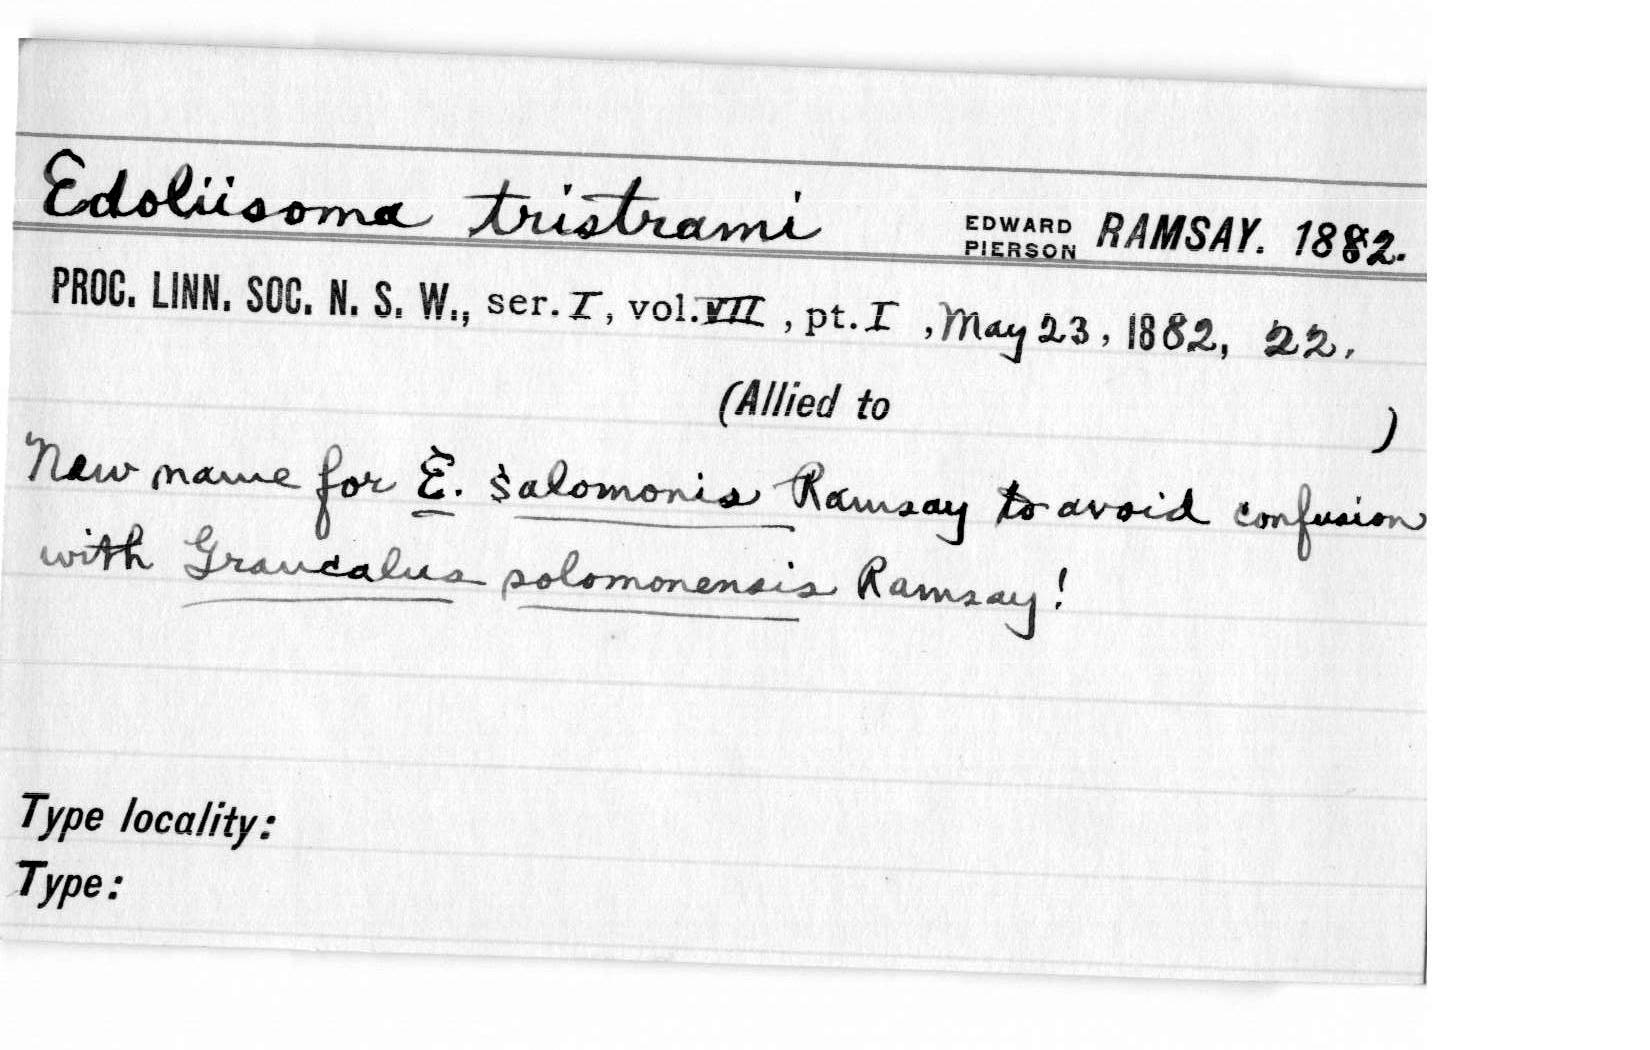 Edoliisoma tristrami EDWARD PIERSON RAMSAY. 1882.
PROC. LINN. SOC. N. S. W., ser. I, vol. VII, pt. I, May 23, 1882, 22.
(Allied to )
New name for E. salomonis Ramsay to avoid confusion
with Graucalus solomonensis Ramsay!
Type locality:
Type: